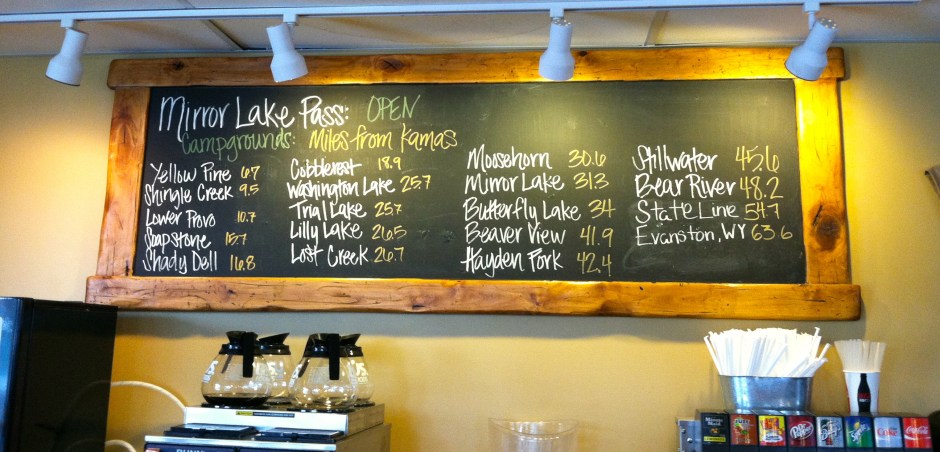 Mirror Lake Pass: OPEN
Campgrounds: Miles from Kamas
Yellow Pine 6.7
Shingle Creek 9.5
Lower Provo 10.7
Soapstone 15.7
Shady Dell 16.8
Cobblerest 18.9
Washington Lake 25.7
Trial Lake 25.7
Lilly Lake 26.5
Lost Creek 26.7
Moosehorn 30.6
Mirror Lake 31.3
Butterfly Lake 34
Beaver View 41.9
Hayden Fork 42.4
Stillwater 45.6
Bear River 48.2
State Line 54.7
Evanston, WY 63.6
Dr Pepper
Sprite
Coke
Coca-Cola